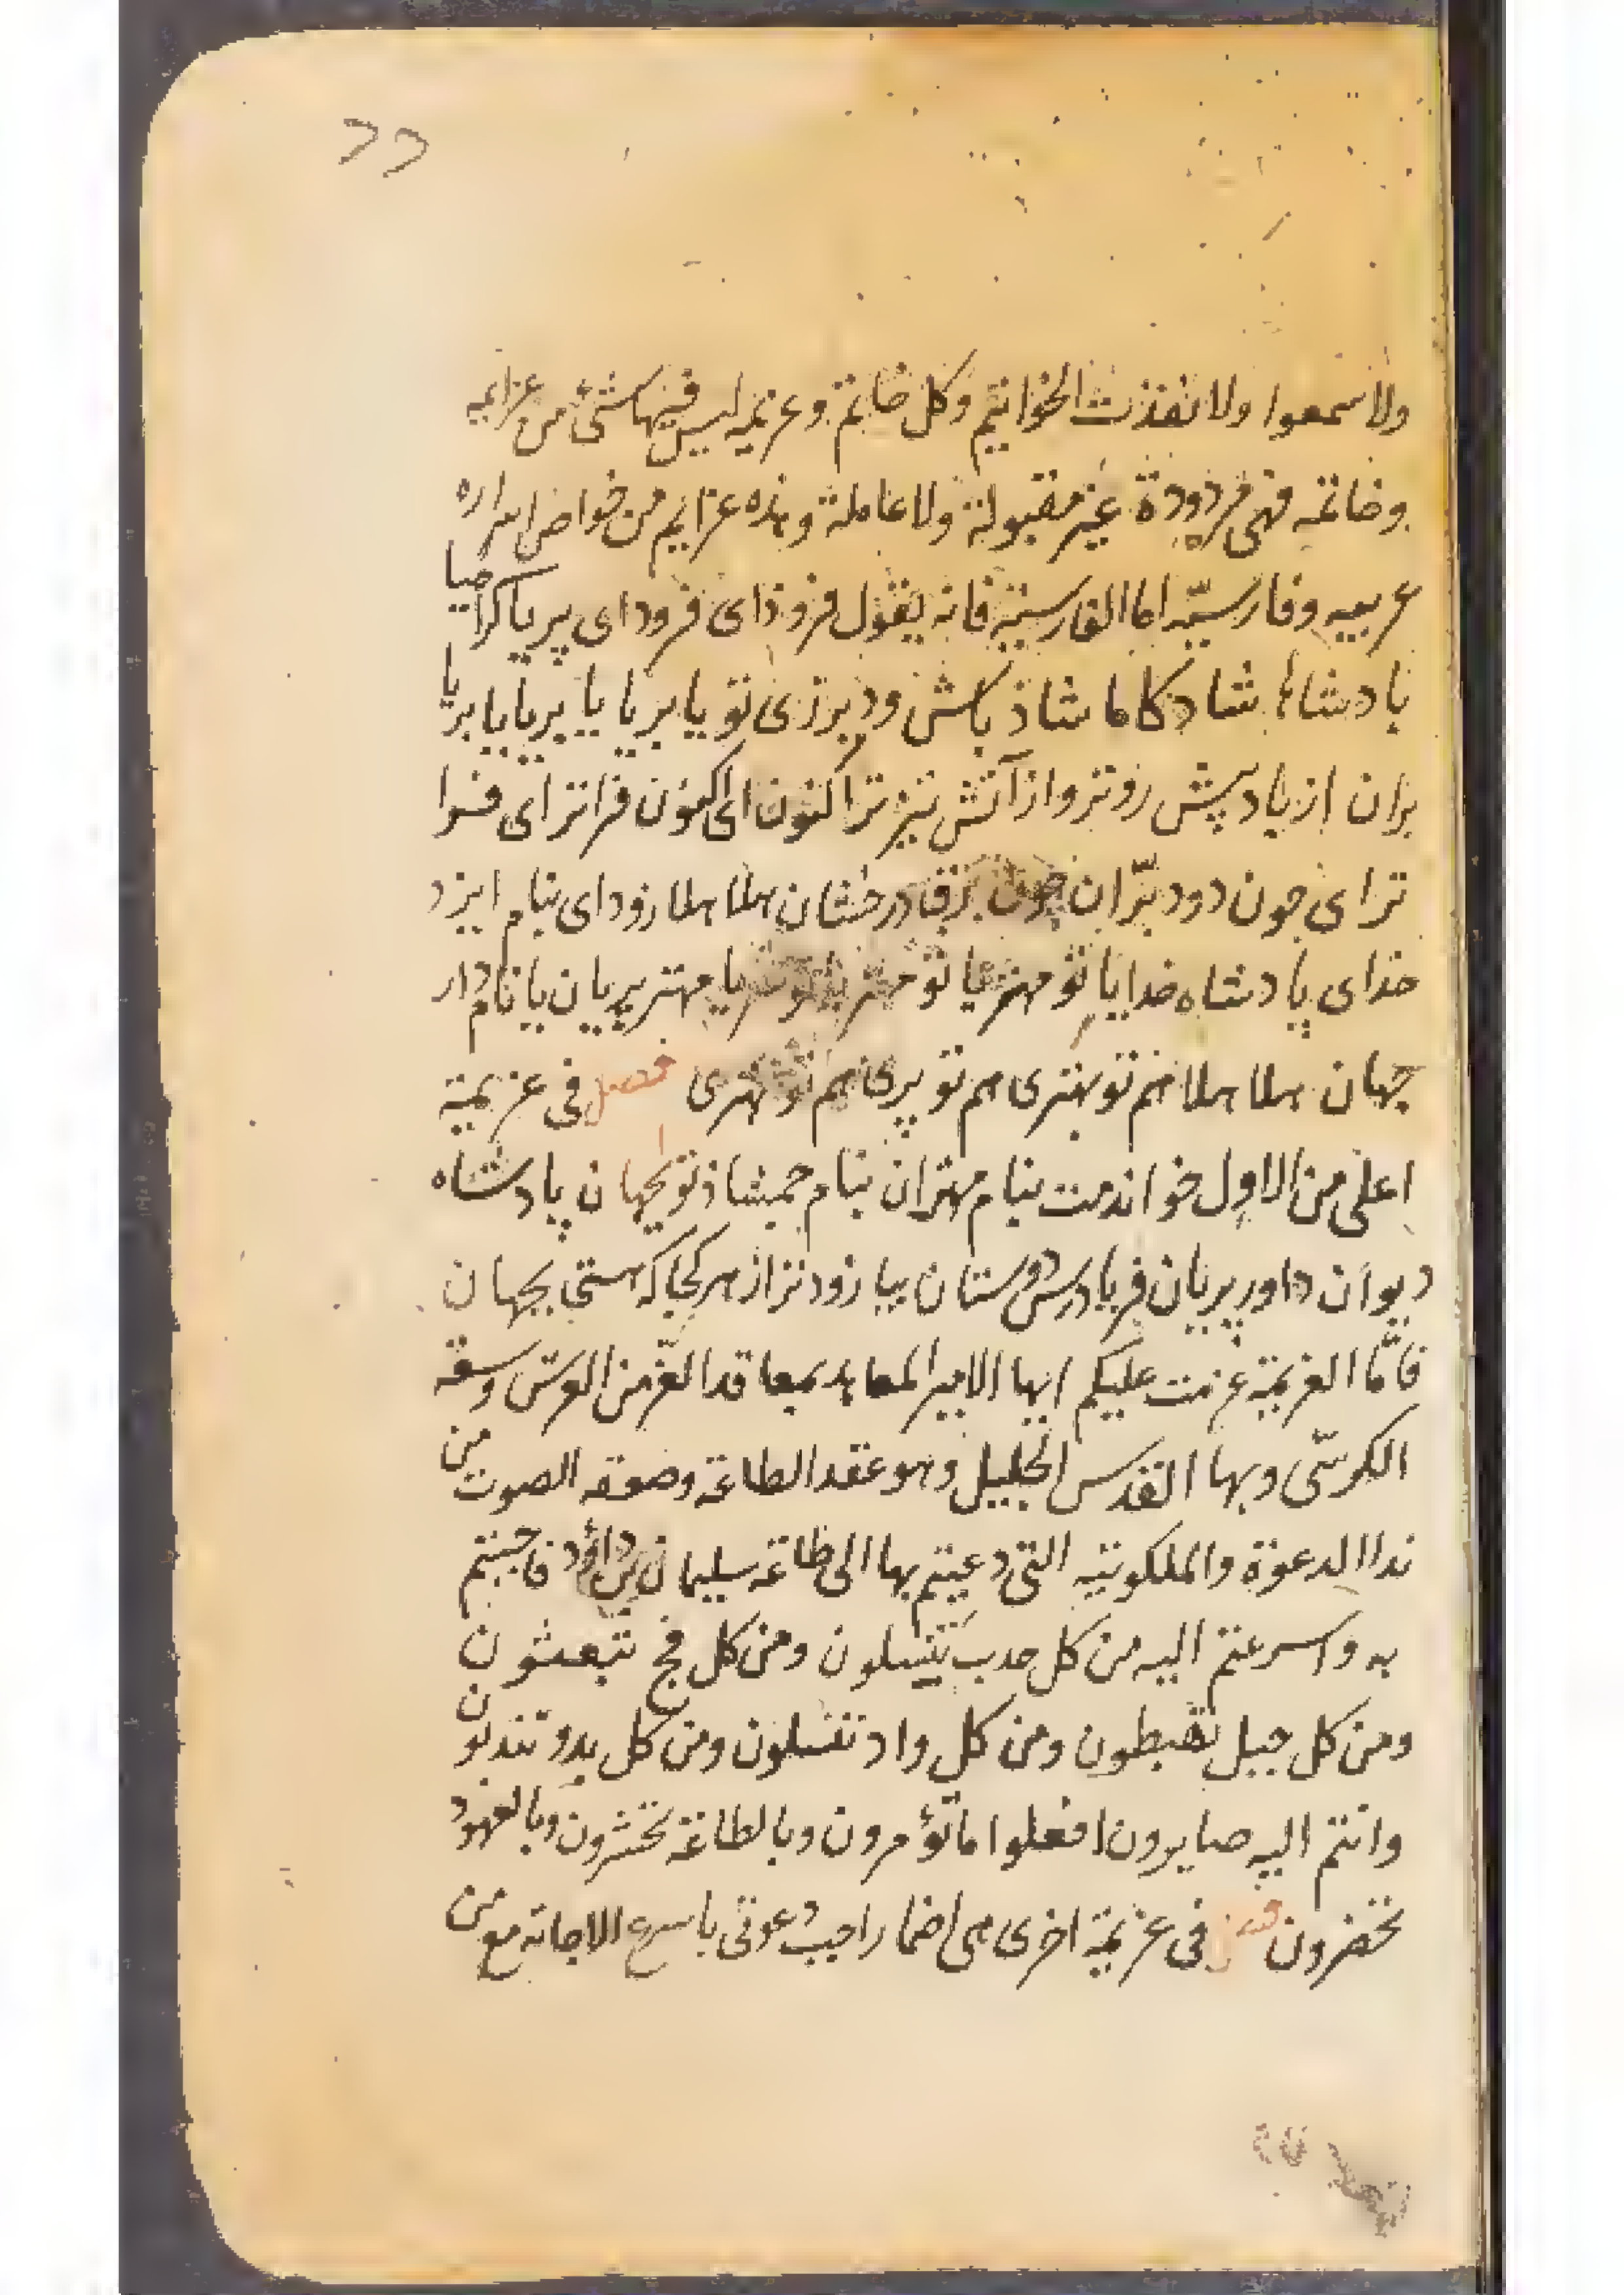 ٢٢
ولا سمعوا ولا نفذت الخواتيم وكل خاتم وعزيمه ليس فيها شئ من عزايمه
وخاتمه فهى مردودة غير مقبولة ولا عاملة وهذه عزايم من خواص اسراره
عربيه وفارسيّه اما الفارسيّة فانه يقول فروذاى فروداى پريا كراصيا
بادشاها شاد كاما شاذ باش ود برزى تو يا بريا يا بريا يا بريا
بران از باد پيش روتر واز آتش تيز تر اكنون اى اكنون فراتر اى فرا
تر اى جون دود برّان جون برقا درخشان هلا هلا زوداى بنام ايزد
خداى پادشاه خدايا تو مهتر يا تو مهتر يا مهتر پريان يا نام دار
جهان هلا هلا هم تو بهترى هم تو پرى هم تو مهترى فصل فى عزيمة
اعلى من الاول خواندمت بنام مهتران بنام جمشاذ تو بجهان پادشاه
ديوان داور پريان فريادرس دوستان بيا زودتر از هر كجا كه هستى بجهان
فامّا العزيمة عزمت عليكم ايها الامير المعاهد بمعاقد العزّ من العرش وسعة
الكرسّى وبها القدس الجليل وهو عقد الطاعة وصعقه الصوت من
ندا الدعوة والملكوتيه التى دعيتم بها الى طاعة سليمان بن داؤد فاجبتم
به واسرعتم اليه من كل حدب تنسلون ومن كل فج تبعثون
ومن كل جبل تهبطون ومن كل واد تنسلون ومن كل بدو تندبون
وانتم اليه صايرون افعلوا ما تؤمرون وبالطاعة تحشرون وبالعهود
تحضرون فصل فى عزيمة اخرى هى اضمار اجيب دعوتى باسرع الاجابة مع من